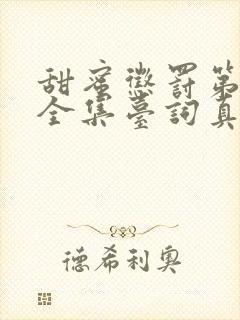 甜蜜懲罰第
全集臺詞真
德希利奧